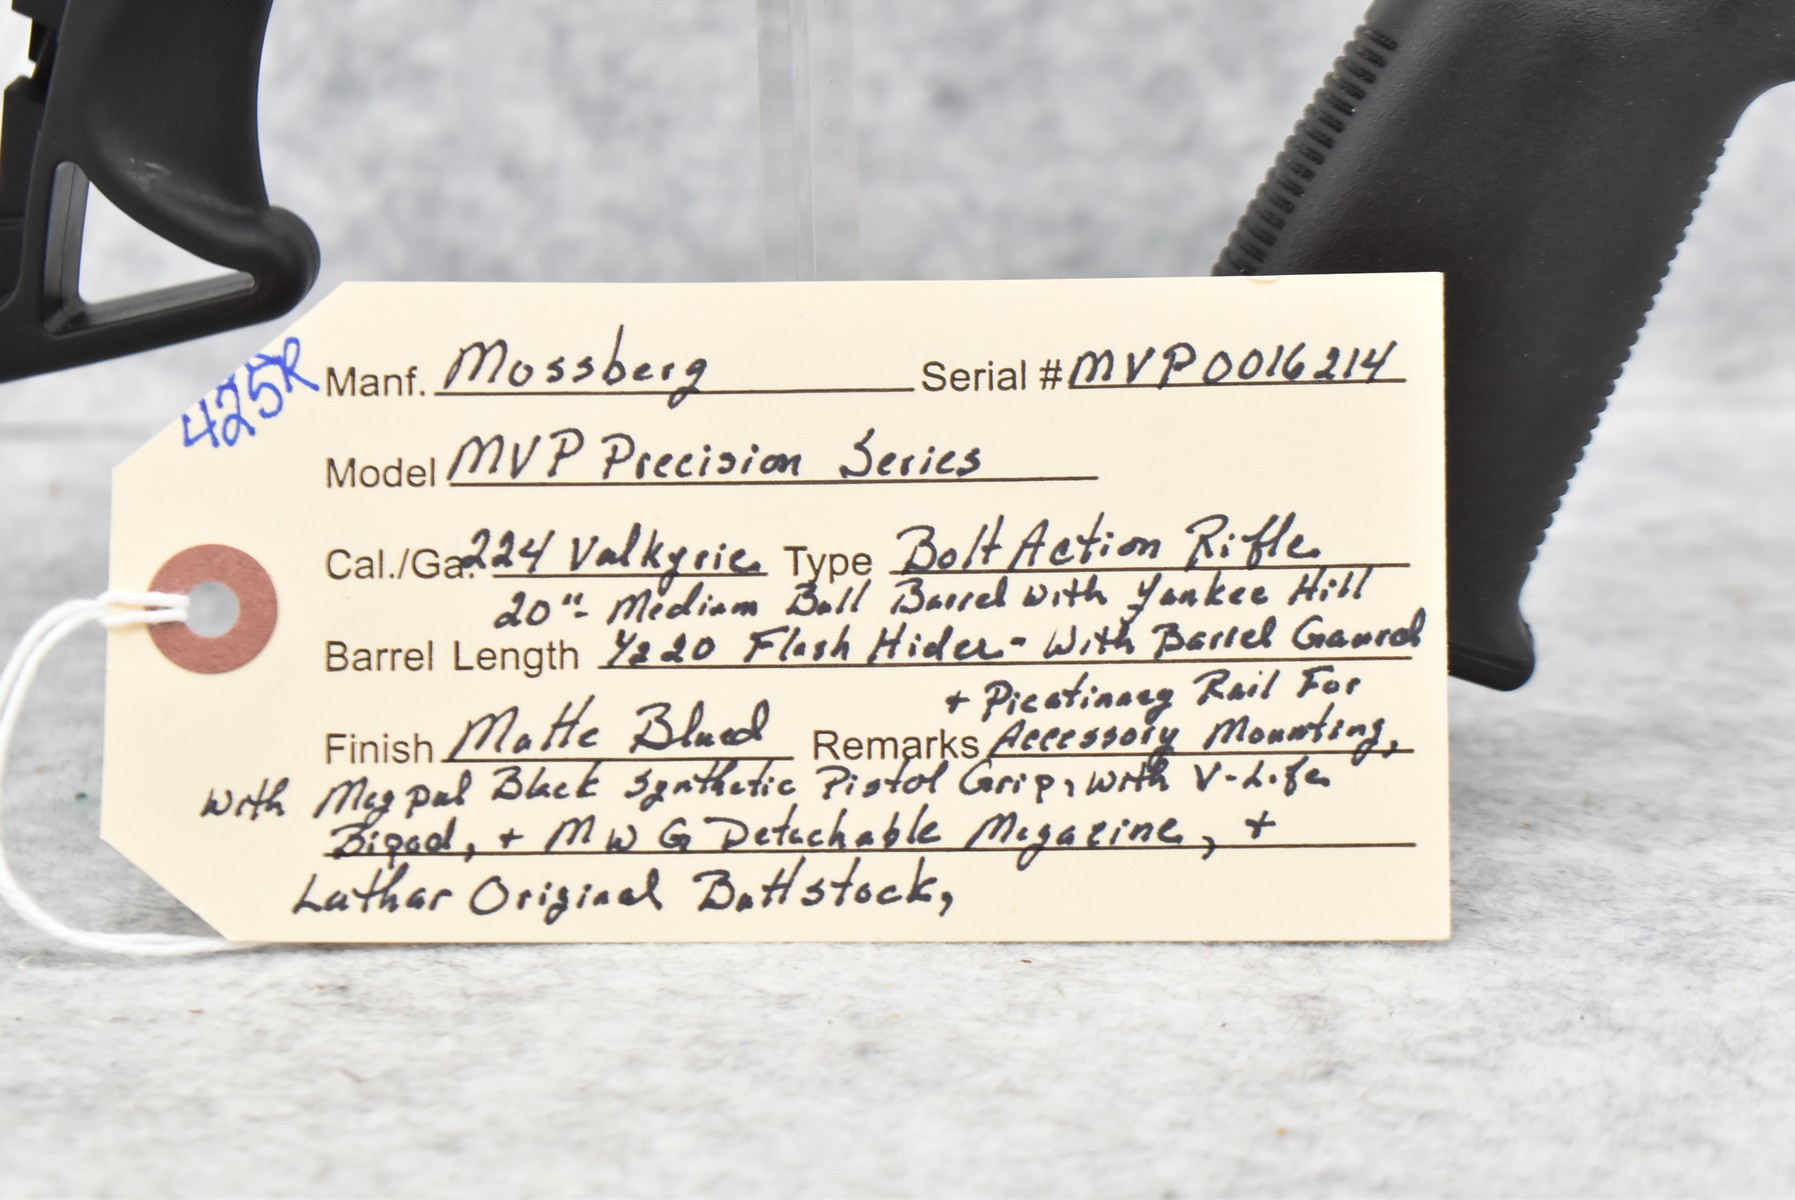 425R
Manf. Mossberg Serial # MVP0016214
Model MVP Precision Series
Cal./Ga. 224 Valkyrie Type Bolt Action Rifle
20"- Medium Bull Barrel with Yankee Hill
Barrel Length 1/2 20 Flash Hider - With Barrel Gaurd
+ Picatinney Rail For
Finish Matte Blued Remarks Accessory Mounting,
with Magpul Black Synthetic Pistol Grip, with V-Life
Bipod, + MWG Detachable Magazine, +
Luthar Original Buttstock,